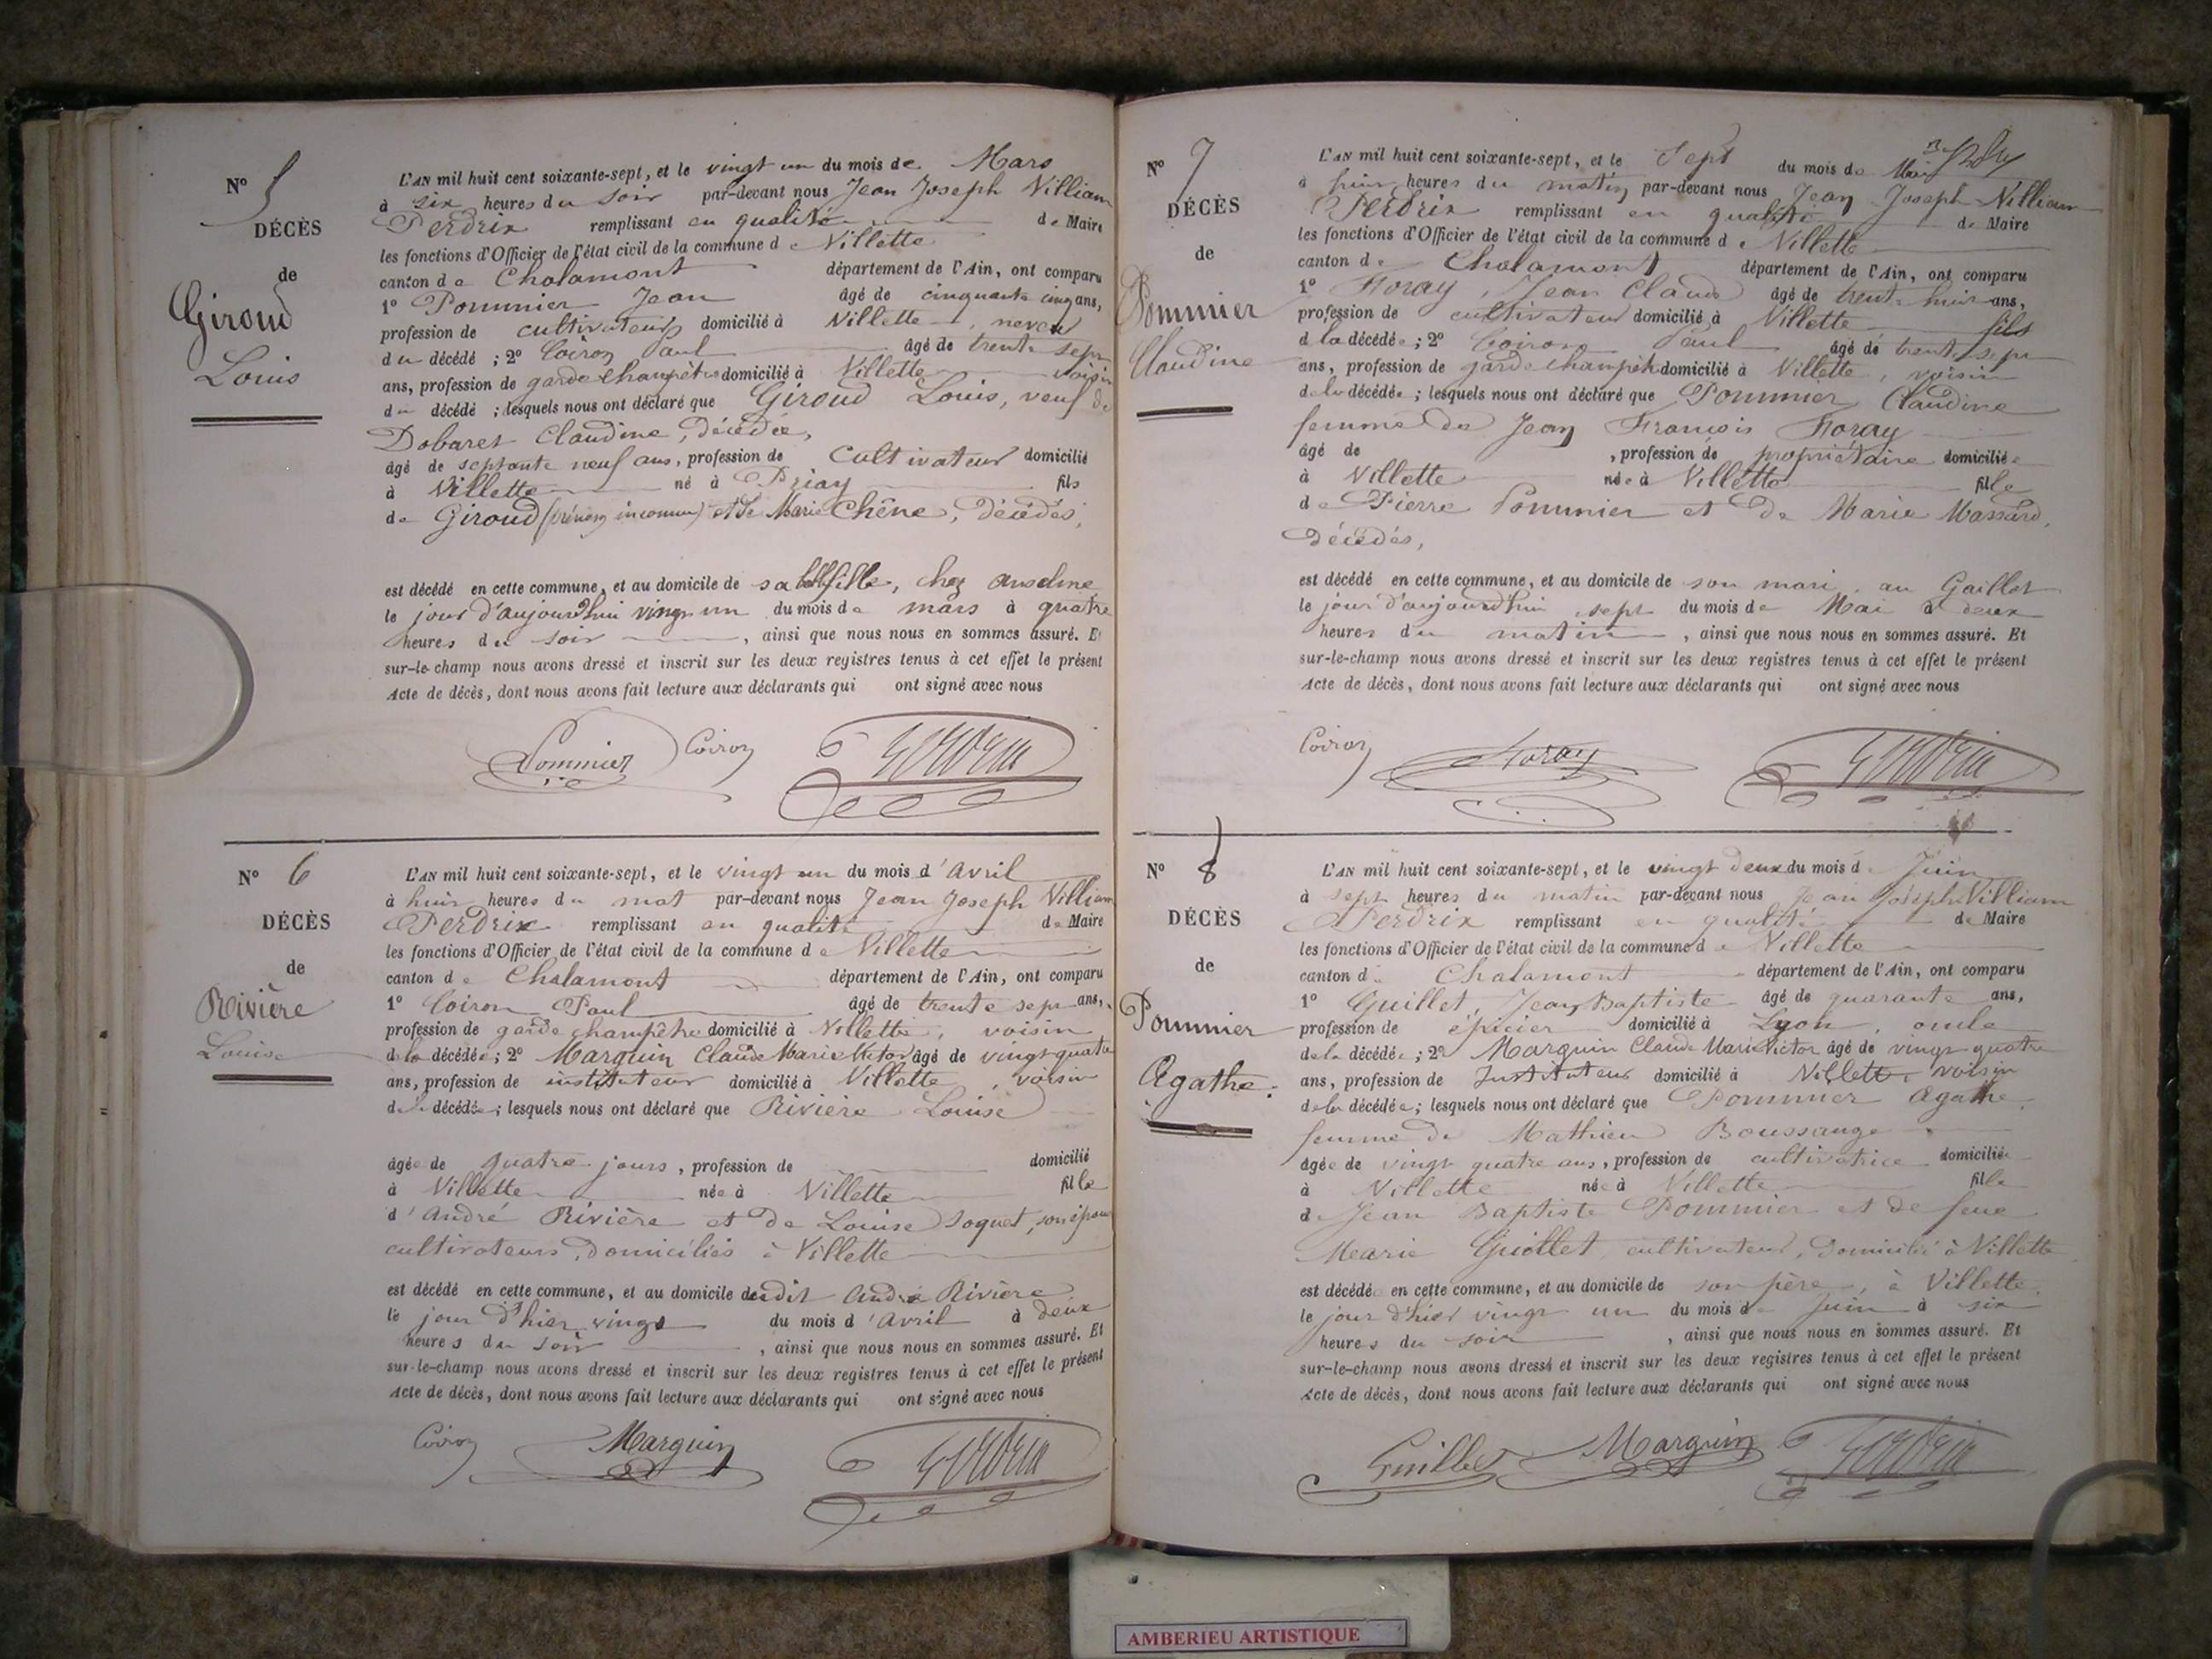 N° 5
DÉCÈS
de
Giroud
Louis
L'AN mil huit cent soixante-sept, et le vingt un du mois de Mars
à six heures du soir par-devant nous Jean Joseph Villiam
Perdrix remplissant en qualité de Maire
les fonctions d'Officier de l'état civil de la commune de Villette
canton de Chalamont département de l'Ain, ont comparu
1° Pommier Jean âgé de cinquante cinq ans,
profession de cultivateur domicilié à Villette, neveu
du décédé ; 2° Coiron Paul âgé de trente sept
ans, profession de garde champêtre domicilié à Villette voisin
du décédé ; lesquels nous ont déclaré que Giroud Louis, veuf de
Dobaret Claudine, décédée,
âgé de septante neuf ans, profession de Cultivateur domicilié
à Villette né à Priay fils
de Giroud (prénom inconnu) et de Marie Chêne, décédés,
est décédé en cette commune, et au domicile de sa fille, chez anselme
le jour d'aujourd'hui vingt un du mois de mars à quatre
heures du soir, ainsi que nous nous en sommes assuré. Et
sur-le-champ nous avons dressé et inscrit sur les deux registres tenus à cet effet le présent
Acte de décès, dont nous avons fait lecture aux déclarants qui ont signé avec nous
Pommier Coiron Perdrix
N° 6
DÉCÈS
de
Rivière
Louise
L'AN mil huit cent soixante-sept, et le vingt un du mois d'avril
à huit heures du mat par-devant nous Jean Joseph Villiam
Perdrix remplissant en qualité de Maire
les fonctions d'Officier de l'état civil de la commune de Villette
canton de Chalamont département de l'Ain, ont comparu
1° Coiron Paul âgé de trente sept ans,
profession de garde champêtre domicilié à Villette, voisin
de la décédée ; 2° Marguin Claude Marie Victor âgé de vingt quatre
ans, profession de instituteur domicilié à Villette, voisin
de la décédée ; lesquels nous ont déclaré que Rivière Louise
âgée de quatre jours, profession de domicilié
à Villette née à Villette fille
d'André Rivière et de Louise Soquet, son épouse
cultivateurs, domiciliés à Villette
est décédé en cette commune, et au domicile dudit André Rivière
le jour d'hier vingt du mois d'avril à deux
heures du soir, ainsi que nous nous en sommes assuré. Et
sur-le-champ nous avons dressé et inscrit sur les deux registres tenus à cet effet le présent
Acte de décès, dont nous avons fait lecture aux déclarants qui ont signé avec nous
Coiron Marguin Perdrix
N° 7
DÉCÈS
de
Pommier
Claudine
L'AN mil huit cent soixante-sept, et le Sept du mois de Mai
à huit heures du matin par-devant nous Jean Joseph Villiam
Perdrix remplissant en qualité de Maire
les fonctions d'Officier de l'état civil de la commune de Villette
canton de Chalamont département de l'Ain, ont comparu
1° Foray, Jean Claude âgé de trente huit ans,
profession de cultivateur domicilié à Villette fils
de la décédée ; 2° Coiron Paul âgé de trente sept
ans, profession de garde champêtre domicilié à Villette, voisin
de la décédée ; lesquels nous ont déclaré que Pommier Claudine
femme de Jean François Foray
âgé de , profession de propriétaire domiciliée
à Villette née à Villette fille
de Pierre Pommier et de Marie Massard,
décédés,
est décédé en cette commune, et au domicile de son mari, au Gaillot
le jour d'aujourd'hui sept du mois de Mai à deux
heures du matin, ainsi que nous nous en sommes assuré. Et
sur-le-champ nous avons dressé et inscrit sur les deux registres tenus à cet effet le présent
Acte de décès, dont nous avons fait lecture aux déclarants qui ont signé avec nous
Coiron Foray Perdrix
N° 8
DÉCÈS
de
Pommier
Agathe.
L'AN mil huit cent soixante-sept, et le vingt deux du mois de Juin
à sept heures du matin par-devant nous Jean Joseph Villiam
Perdrix remplissant en qualité de Maire
les fonctions d'Officier de l'état civil de la commune de Villette
canton de Chalamont département de l'Ain, ont comparu
1° Guillet, Jean Baptiste âgé de quarante ans,
profession de épicier domicilié à Lyon, oncle
de la décédée ; 2° Marguin Claude Marie Victor âgé de vingt quatre
ans, profession de Instituteur domicilié à Villette, voisin
de la décédée ; lesquels nous ont déclaré que Pommier Agathe,
femme de Mathieu Boussange
âgée de vingt quatre ans, profession de cultivatrice domiciliée
à Villette née à Villette fille
de Jean Baptiste Pommier et de feue
Marie Guillet, cultivateur, domicilié à Villette
est décédée en cette commune, et au domicile de son père, à Villette,
le jour d'hier vingt un du mois de Juin à six
heures du soir, ainsi que nous nous en sommes assuré. Et
sur-le-champ nous avons dressé et inscrit sur les deux registres tenus à cet effet le présent
Acte de décès, dont nous avons fait lecture aux déclarants qui ont signé avec nous
Guillet Marguin Perdrix
AMBERIEU ARTISTIQUE